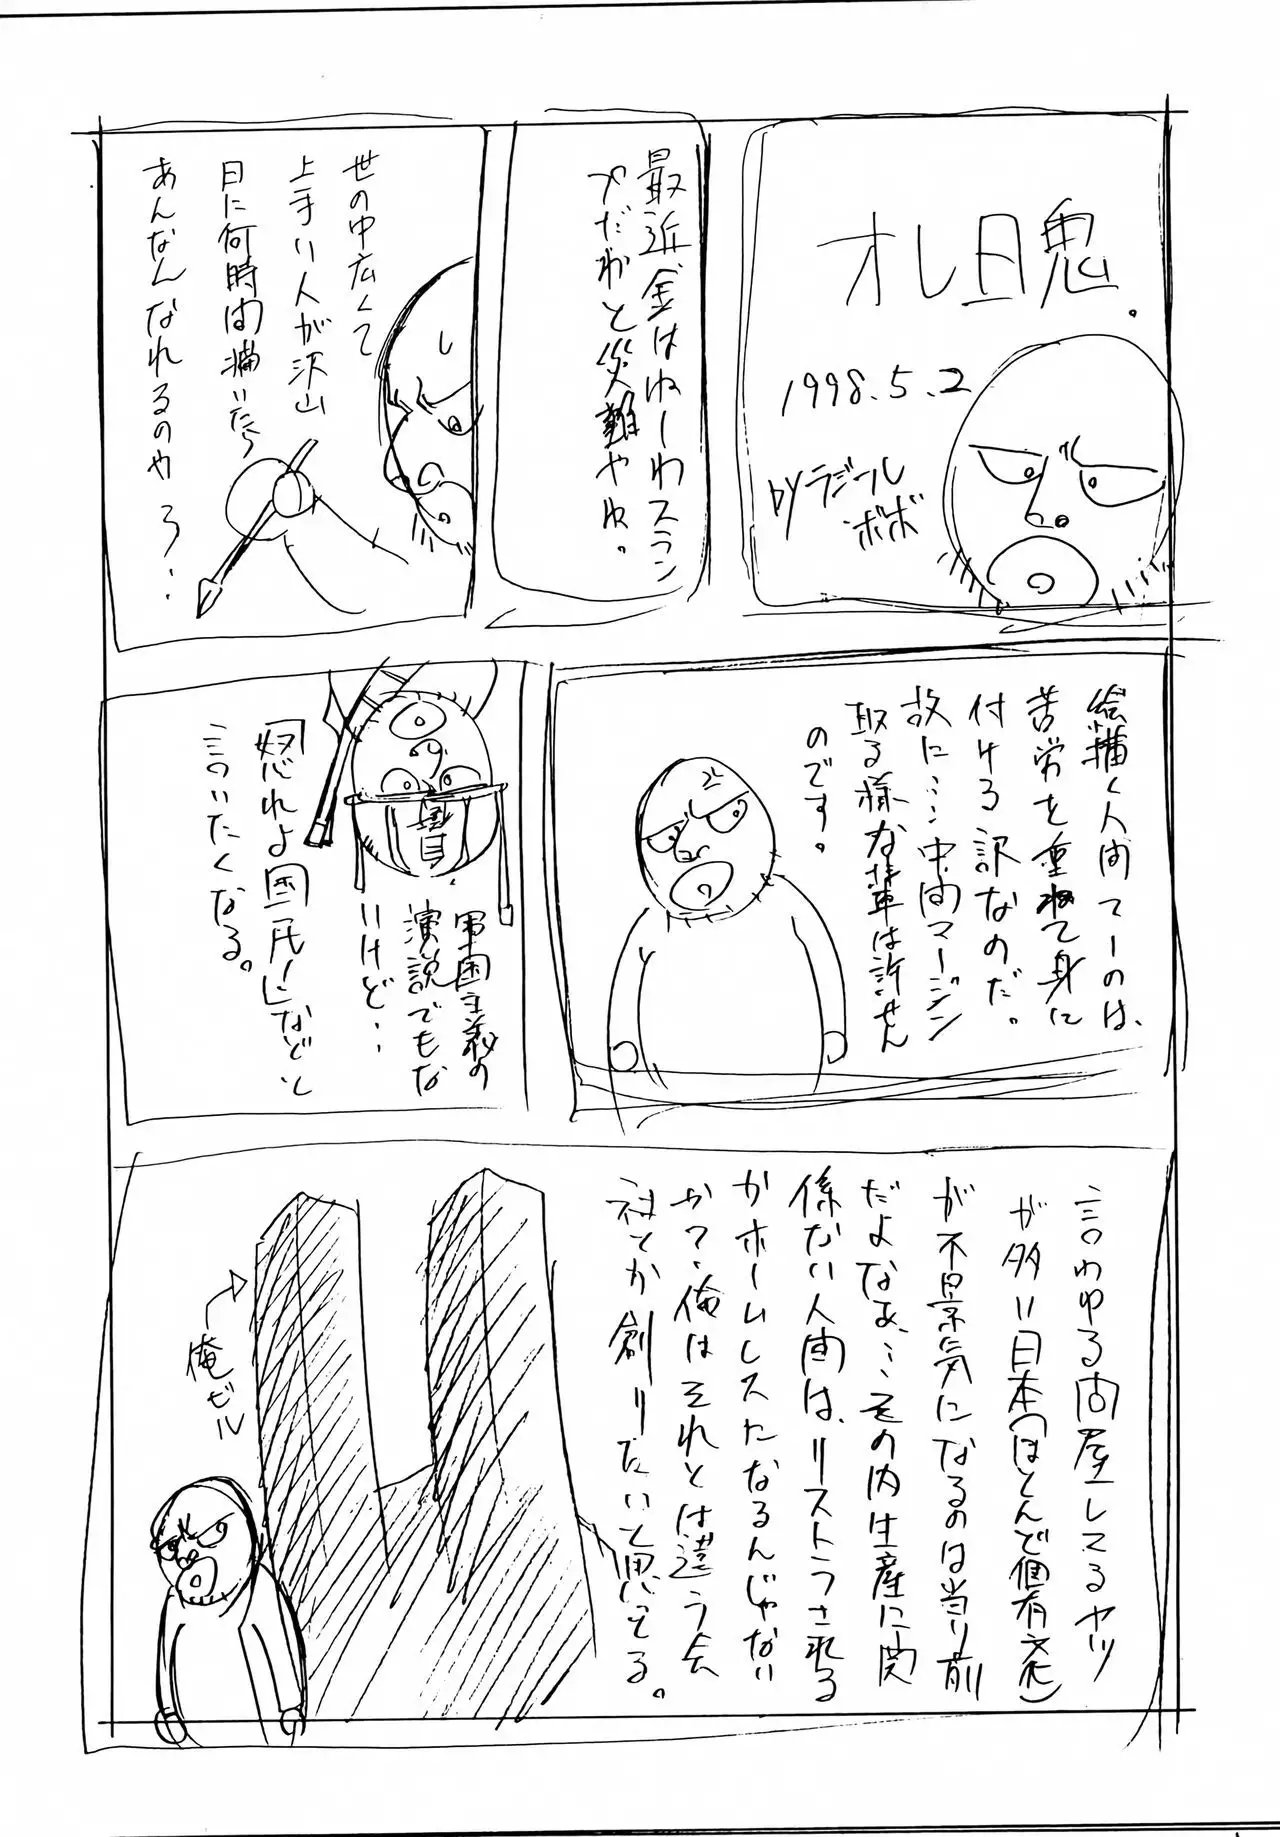 オレ日鬼.
1998.5.2
byラジール
ボボ
最近、金はねーわスラン
プだわと災難やね。
世の中広くて
上手い人が沢山
日に何時間描いたら
あんなんなれるのやろ..
絵描く人間てーのは、
苦労を重ねて身に
付ける訳なのだ。
故に…中間マージン
取る様な輩は許せん
のです。
軍国主義の
演説でもな
いけど..
「怒れよ国民!」などと
言いたくなる。
言わゆる問屋してるヤツ
が多い日本(ほとんど個有文化)
が不景気になるのは当り前
だよなぁ…その内生産に関
係ない人間は、リストラされる
かホームレスになるんじゃない
か?俺はそれとは違う会
社とか創りたいと思ってる。
俺ビル